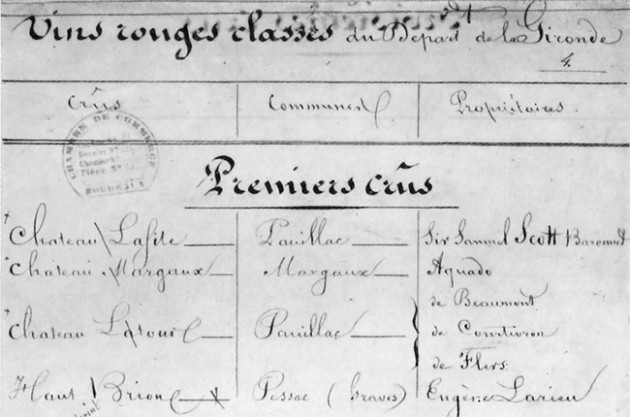 Vins rouges classés du Départ de la Gironde
Crûs Communes Propriétaires
CHAMBRE DE COMMERCE
BORDEAUX
Premiers crûs
Chateau Lafite Pauillac Sir Samuel Scott Baronnet
Chateau Margaux Margaux Aguado
de Beaumont
Chateau Latour Pauillac de Courtivron
de Flers
Haut Brion Pessac (Graves) Eugène Larieu